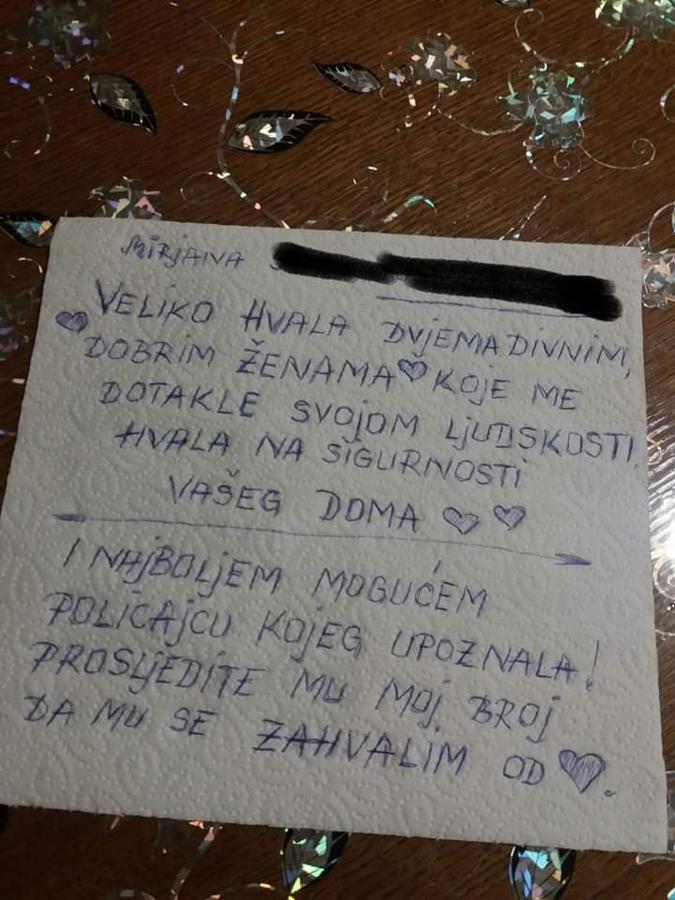 MIRJANA
VELIKO HVALA DVJEMA DIVNIM,
DOBRIM ŽENAMA KOJE ME
DOTAKLE SVOJOM LJUDSKOSTI.
HVALA NA SIGURNOSTI
VAŠEG DOMA
I NAJBOLJEM MOGUĆEM
POLICAJCU KOJEG UPOZNALA!
PROSLJEDITE MU MOJ BROJ
DA MU SE ZAHVALIM OD ♥.